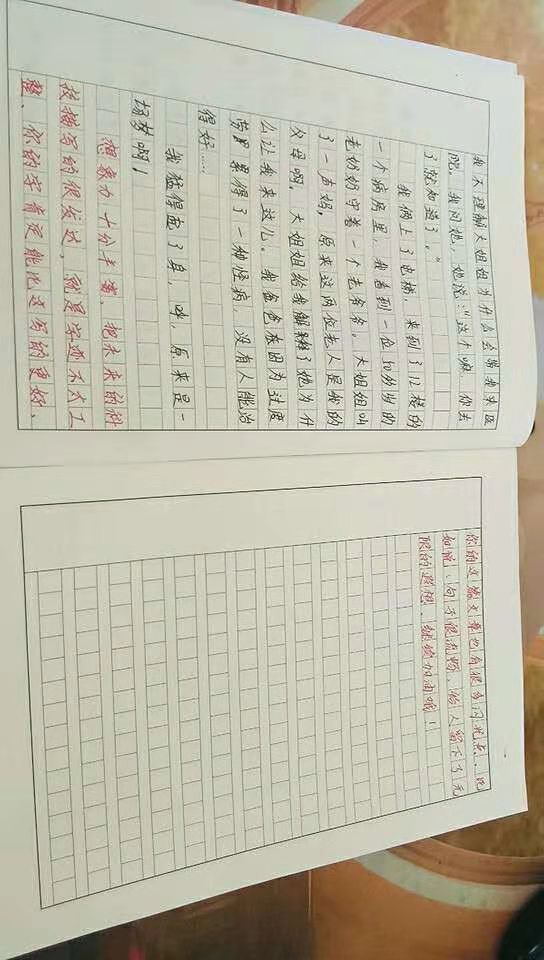 我不理解大姐姐为什么会带我来医
院。我问她，她说：“这个嘛，你去
了就知道了。”
我俩上了电梯，来到了12楼的
一个病房里，我看到一位80外岁的
老奶奶守着一个老爷爷。大姐姐叫
了一声妈。原来这两位老人是我的
父母啊。大姐姐给我解释了她为什
么让我来这儿。我爸爸在因为过度
劳累累得了一种怪病，没有人能治
得好……
我猛得起了身，哼，原来是一
场梦啊！
想象力十分丰富，把未来的科
技描写的很发达，就是字迹不太工
整，你的字肯定能比这写的更好，
你的这篇文章也有很多闪光点，比
如说：句子很流畅，给人留下了无
限的遐想，继续加油哦！